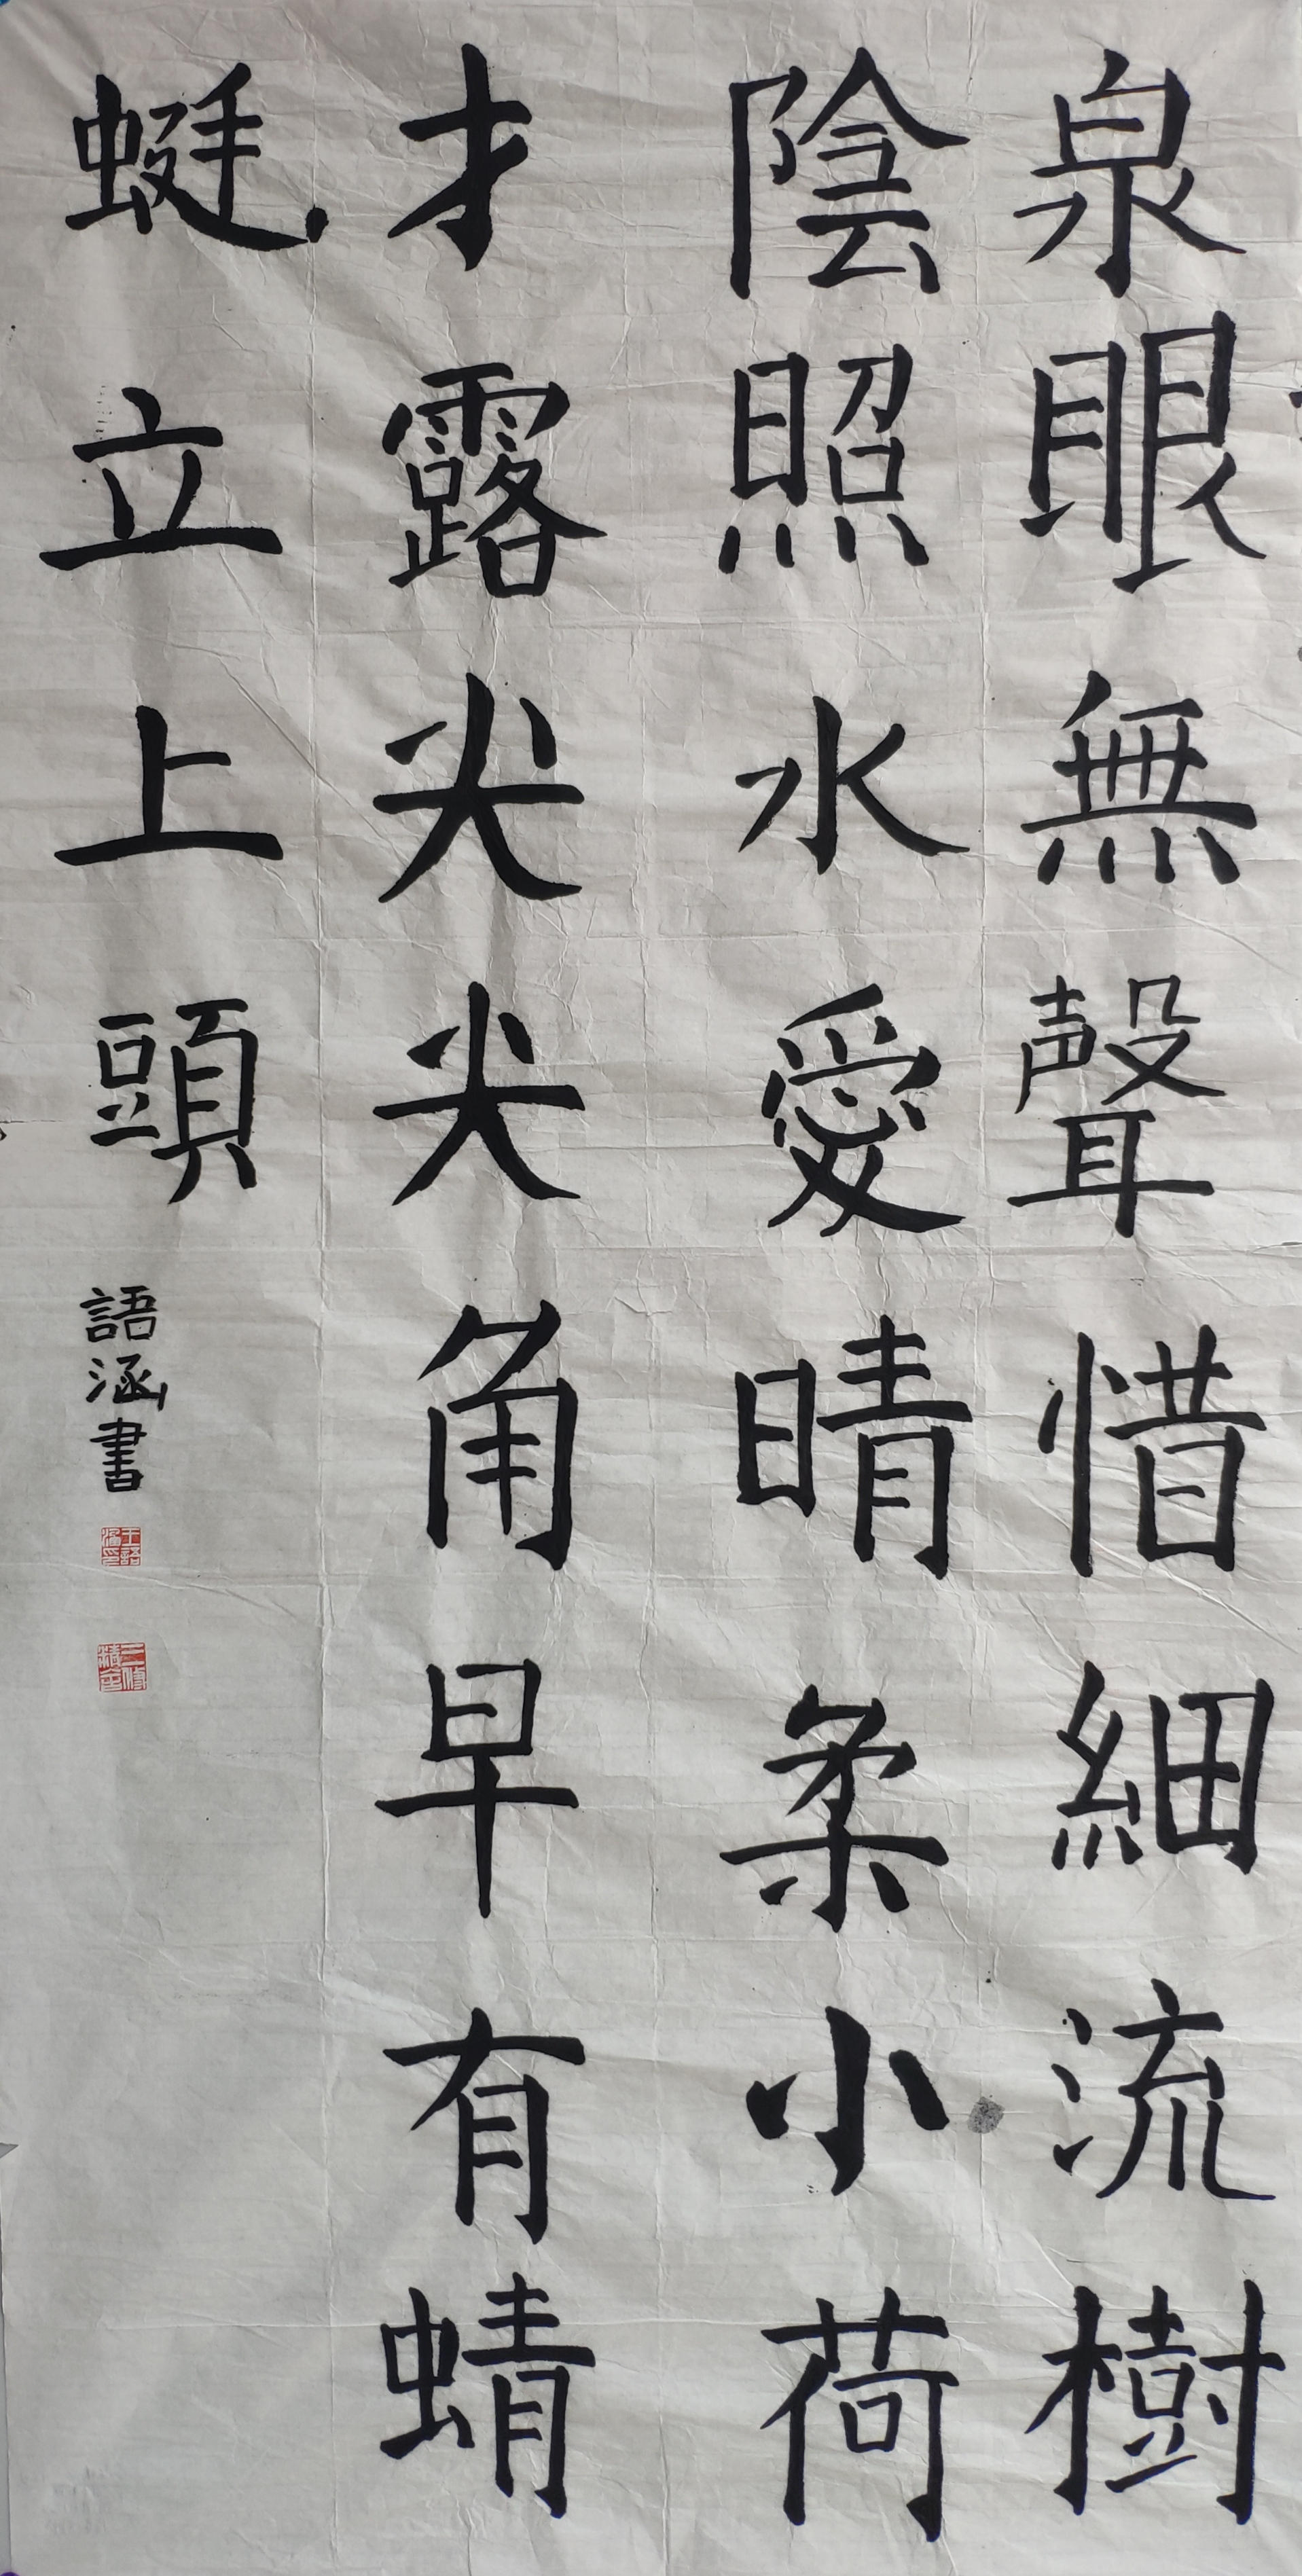 泉眼無聲惜細流樹
陰照水愛晴柔小荷
才露尖尖角早有蜻
蜓立上頭
語涵書
王語涵印